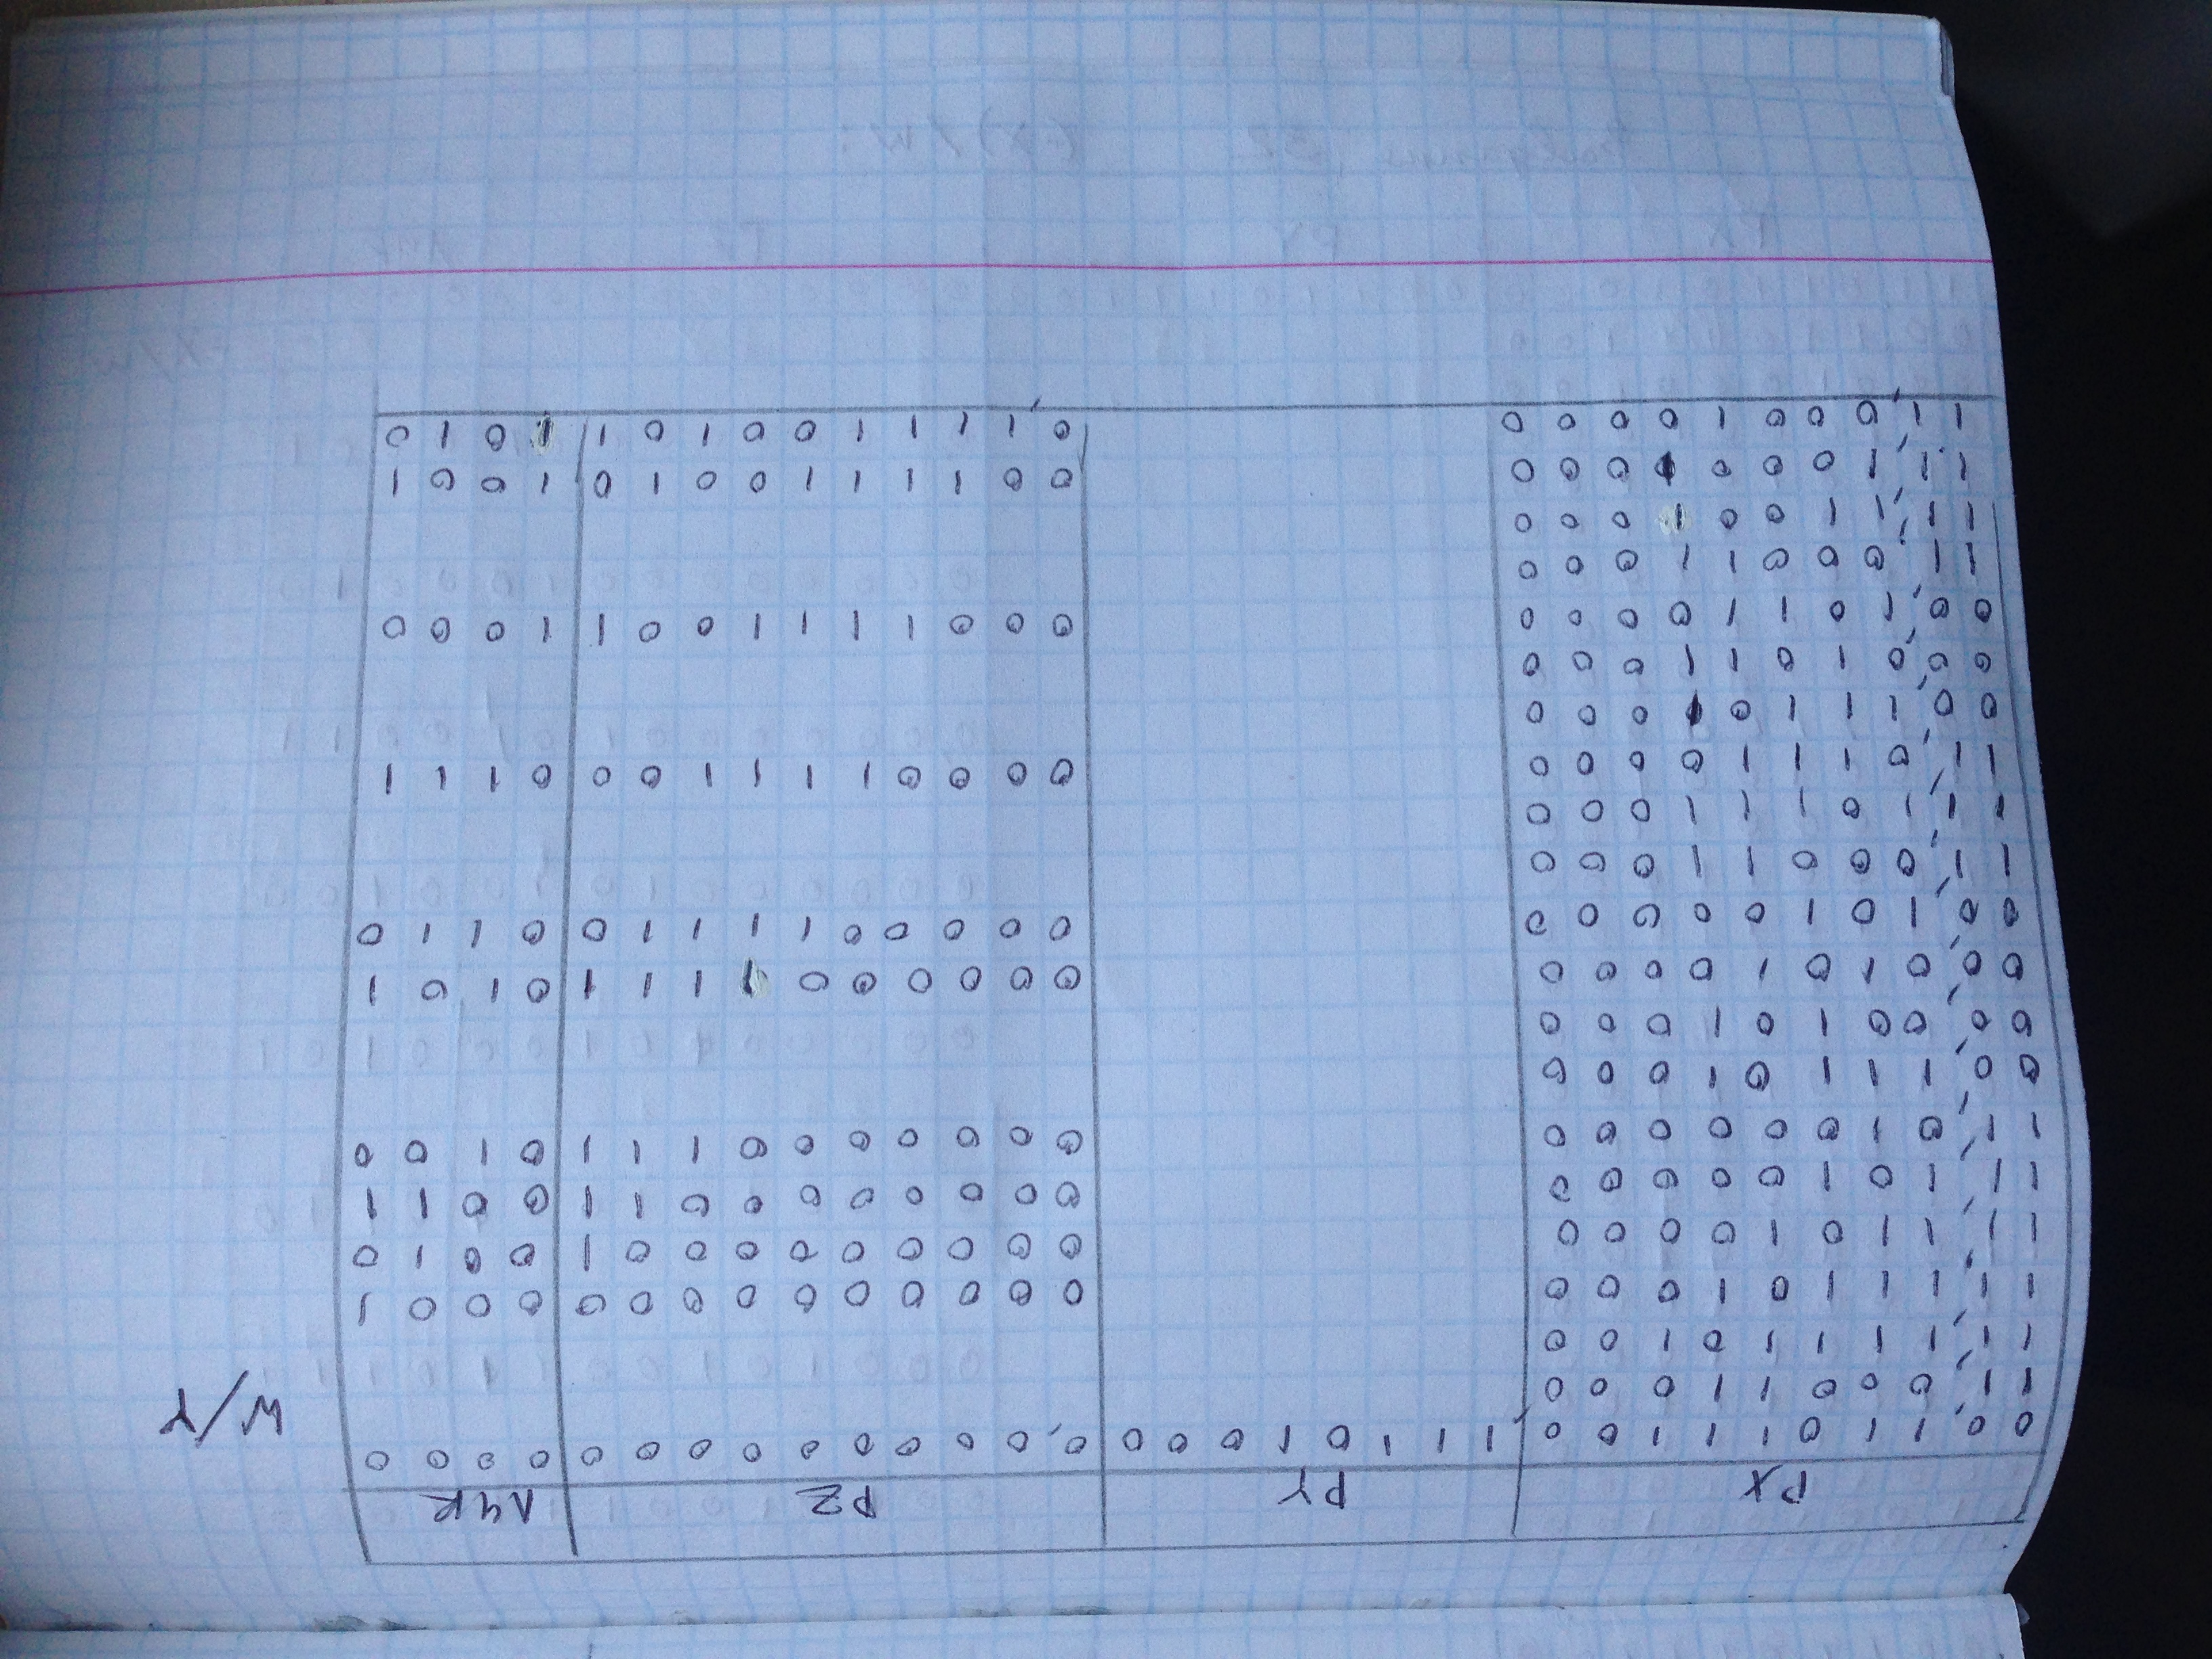 PX PY PZ ЛЧК
00,11011100 ,11101000 0,000000000 0000
W/Y
11,00011000
11,11110100
11,11101000 0000000000 0001
11,11010000 0000000001 0010
11,10100000 0000000011 0011
11,01000000 0000000111 0100
00,11101000
00,00101000
00,01010000 0000001111 0101
00,10100000 0000011110 0110
11,00011000
11,10111000
11,01110000 0000111100 0111
00,11101000
00,01011000
00,10110000 0001111001 1000
11,00011000
11,11001000
11,10000000 0011110010 1001
11,00010000 0,111100101 1010